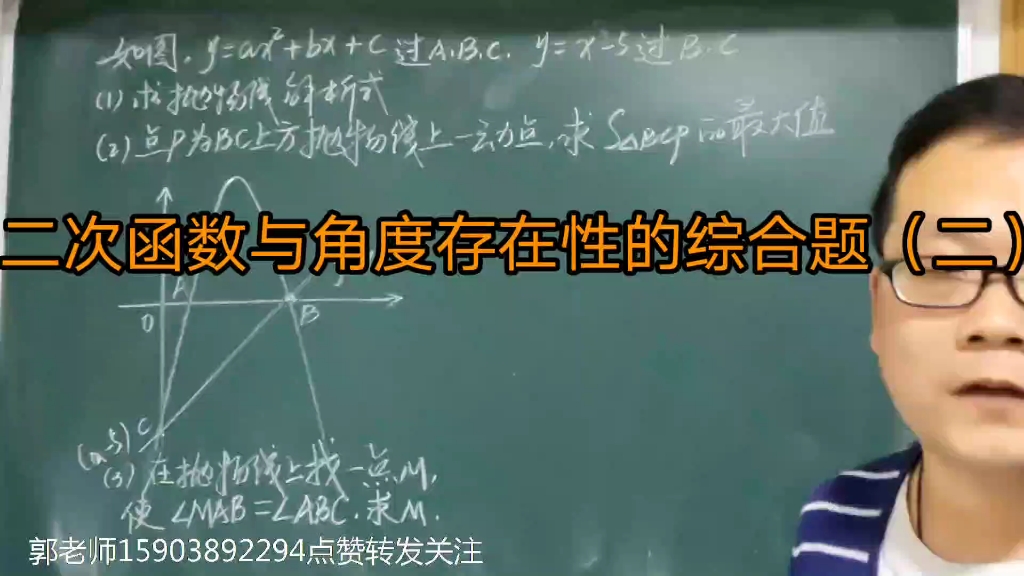 如图，y=ax²+bx+c 过A.B.C. y=x-5过B.C
(1) 求抛物线解析式
(2) 点P为BC上方抛物线上一动点，求 S△BCP的最大值
二次函数与角度存在性的综合题（二）
A
O
B
C
(3) 在抛物线上找一点M，
使∠MAB=∠ABC.求M.
郭老师15903892294点赞转发关注